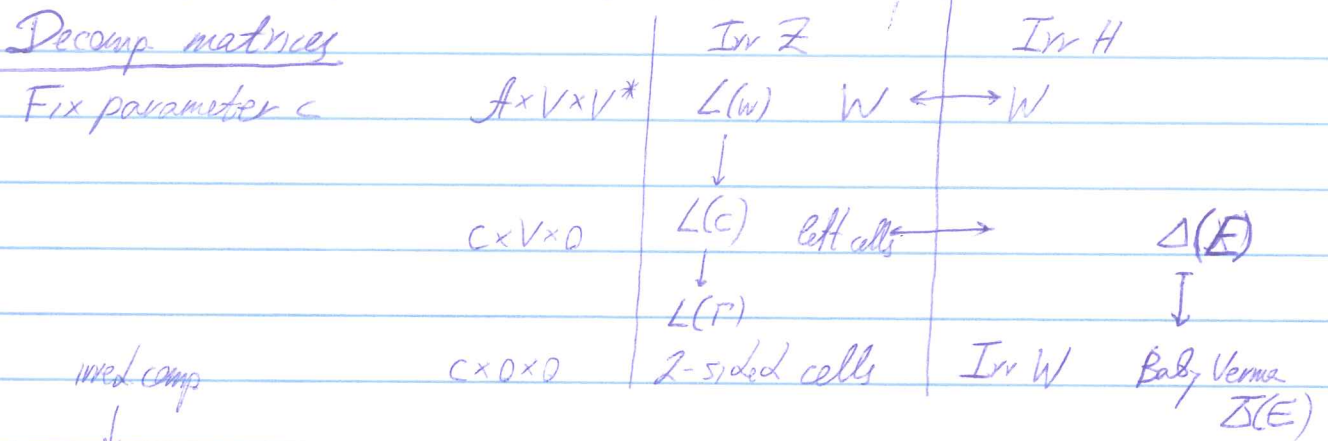 Decomp. matrices Irr Z Irr H
Fix parameter c A×V×V* L(w) W ↔ W
↓
C×V×0 L(c) left cells ↔ Δ(E)
↓ ↓
L(Γ)
irred comp C×0×0 2-sided cells Irr W Baby Verma
↓ Δ̄(E)